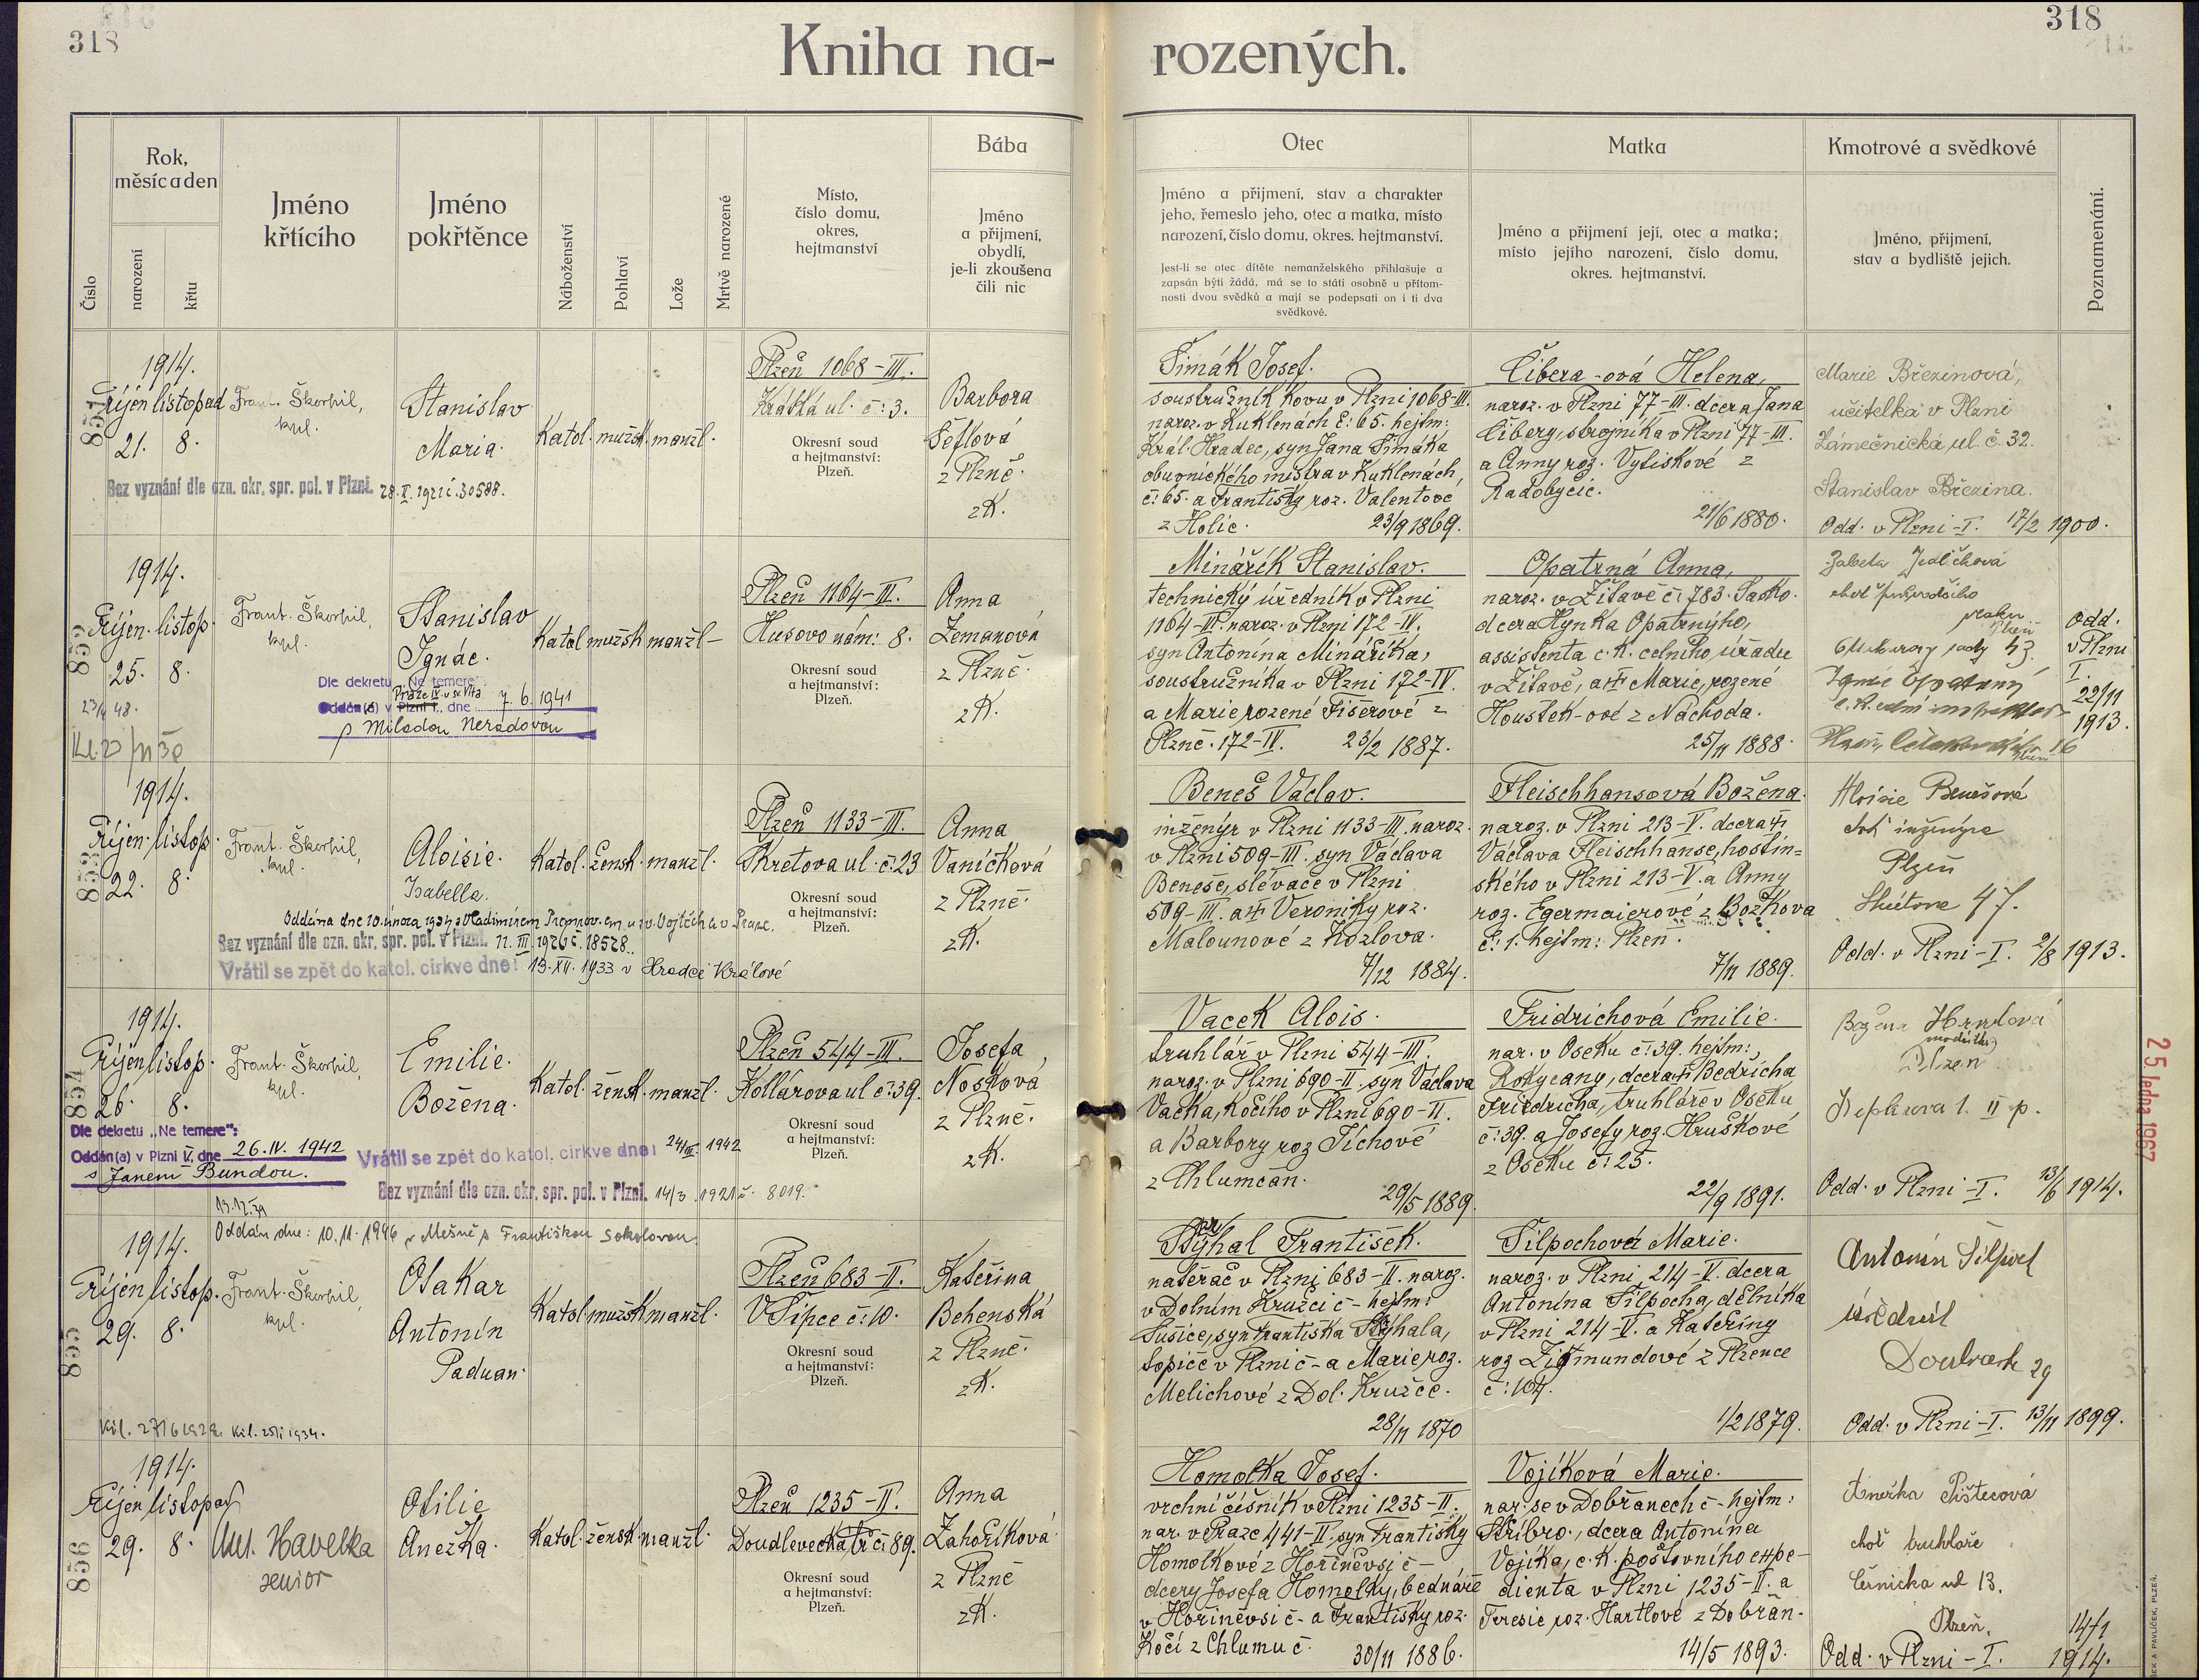 318
318
Kniha na- rozených.
Číslo
Rok, měsíc a den
narození
křtu
Jméno křtícího
Jméno pokřtěnce
Náboženství
Pohlaví
Lože
Mrtvě narozené
Místo, číslo domu, okres, hejtmanství
Bába
Jméno a přijmení, obydlí, je-li zkoušena čili nic
Otec
Jméno a přijmení, stav a charakter
jeho, řemeslo jeho, otec a matka, místo
narození, číslo domu, okres. hejtmanství.
Jest-li se otec dítěte nemanželského přihlašuje a
zapsán býti žádá, má se to státi osobně u přítom-
nosti dvou svědků a mají se podepsati on i ti dva
svědkové.
Matka
Jméno a přijmení její, otec a matka;
místo jejího narození, číslo domu,
okres. hejtmanství.
Kmotrové a svědkové
Jméno, přijmení,
stav a bydliště jejich.
Poznamenání.
851
1914.
Říjen listopad
21. 8.
Frant. Škorpil,
kpl.
Stanislav
Maria.
Katol. mužsk. manžl.
Plzeň 1068-III.
Krátká ul. č: 3.
Okresní soud
a hejtmanství:
Plzeň.
Barbora
Šeflová
z Plzně.
zK.
Bez vyznání dle ozn. okr. spr. pol. v Plzni.
Šimák Josef.
soustružník kovu v Plzni 1068-III.
naroz. v Kuklenách č: 65. hejtm:
Král. Hradec, syn Jana Šimáka
obuvnického mistra v Kuklenách,
č: 65. a Františky roz. Valentové
z Holic. 23/9 1869.
Čibera-ová Helena,
naroz. v Plzni 77-III. dcera Jana
Čibery, strojníka v Plzni 77-III.
a Anny roz. Vytiskové z
Radobyčic.
21/6 1880.
Marie Březinová,
učitelka v Plzni
Zámečnická ul. č. 32.
Stanislav Březina.
Odd. v Plzni-I. 17/2 1900.
852
1914.
Říjen. listop.
25. 8.
Frant. Škorpil,
kpl.
Stanislav
Ignác.
Katol mužsk manžl-
Plzeň 1164-III.
Husovo nám: 8.
Okresní soud
a hejtmanství:
Plzeň.
Anna
Zemanová
z Plzně.
zK.
Dle dekretu „Ne temere"
Praze IV. u sv Víta
Oddán(a) v Plzni I., dne 7. 6. 1941
s Miladou Neradovou
Minářík Stanislav.
technický úředník v Plzni
1164-III. naroz. v Plzni 172-IV.
syn Antonína Mináříka,
soustružníka v Plzni 172-IV.
a Marie rozené Fišerové z
Plzně. 172-IV. 23/2 1887.
Opatrná Anna,
naroz. v Žitavě č: 783. Sasko.
dcera Hynka Opatrnýho,
assistenta c. k. celního úřadu
v Žitavě, a Marie, rozené
Houštek-ové z Náchoda.
25/11 1888.
Odd.
v Plzni
I.
22/11
1913.
853
1914.
Říjen. listop.
22. 8.
Frant. Škorpil,
kpl.
Aloisie.
Isabella.
Katol. žensk. manžl.
Plzeň 1133-III.
Škretova ul. č: 23
Okresní soud
a hejtmanství:
Plzeň.
Anna
Vaníčková
z Plzně.
zK.
Bez vyznání dle ozn. okr. spr. pol. v Plzni. 11. III. 1926 č. 18528.
Vrátil se zpět do katol. církve dne: 19. XII. 1933 v Hradci Králové
Beneš Václav.
inženýr v Plzni 1133-III. naroz.
v Plzni 509-III. syn Václava
Beneše, slévače v Plzni
509-III. a Veroniky roz.
Malounové z Kozlova.
7/12 1884.
Fleischhansová Božena.
naroz. v Plzni 213-V. dcera
Václava Fleischhanse, hostin=
ského v Plzni 213-V. a Anny
roz. Egermaierové z Božkova
č: 1. hejtm: Plzeň.
7/11 1889.
Aloisie Benešová
choť inženýra
Plzeň
Odd. v Plzni-I. 2/8 1913.
854
1914.
Říjen listop.
26. 8.
Frant. Škorpil,
kpl.
Emilie.
Božena.
Katol. žensk. manžl.
Plzeň 544-III.
Kollárova ul č: 39.
Okresní soud
a hejtmanství:
Plzeň.
Josefa
Nosková
z Plzně.
zK.
Dle dekretu „Ne temere":
Oddán(a) v Plzni V. dne 26. IV. 1942
s Janem Bundou.
Vrátil se zpět do katol. církve dne: 24/III. 1942
Bez vyznání dle ozn. okr. spr. pol. v Plzni. 14/3. 1921 č. 8019.
Vacek Alois.
truhlář v Plzni 544-III.
naroz. v Plzni 690-II. syn Václava
Vacka, kočího v Plzni 690-II.
a Barbory roz Tichové
z Chlumčan.
29/5 1889.
Fridrichová Emilie.
nar. v Oseku č: 39. hejtm:
Rokycany, dcera Bedřicha
Friedricha, truhláře v Oseku
č: 39. a Josefy roz. Hruškové
z Oseku č: 25.
22/9 1891.
modistka
Plzeň
Odd. v Plzni-I. 13/6 1914.
25. ledna 1967
855
Oddán dne: 10. 11. 1946 v Mešně s Františkou Sokolovou.
1914.
Říjen listop.
29. 8.
Frant. Škorpil,
kpl.
Otakar
Antonín
Paduan.
Katol mužsk manžl.
Plzeň 683-II.
V Šipce č: 10.
Okresní soud
a hejtmanství:
Plzeň.
Kateřina
Behenská
z Plzně.
zK.
Stýhal František.
natěrač v Plzni 683-II. naroz.
v Dolním Kružci č- hejtm:
Sušice, syn Františka Stýhala,
topiče v Plzni č- a Marie roz.
Melichové z Dol. Kružce.
28/11 1870
Šilpochová Marie.
naroz. v Plzni 214-V. dcera
Antonína Šilpocha, dělníka
v Plzni 214-V. a Kateřiny
roz Zigmundové z Plzence
č: 104.
1/2 1879.
Antonín Šilpoch
úředník
Doudlevecká 29
Odd. v Plzni-I. 13/11 1899.
856
1914.
Říjen listopad
29. 8.
Ant. Havelka
senior
Otilie
Anežka.
Katol. žensk manžl.
Plzeň 1235-II.
Doudlevecká tř č: 89.
Okresní soud
a hejtmanství:
Plzeň.
Anna
Zahoříková
z Plzně
zK.
Homolka Josef.
vrchní číšník v Plzni 1235-II.
nar. v Praze 441-II. syn Františky
Homolkové z Hořiněvsi č-
dcery Josefa Homolky, bednáře
v Hořiněvsi č- a Františky roz.
Kočí z Chlumu č. 30/11 1886.
Vojíková Marie.
nar. se v Dobřanech č- hejtm:
Stříbro., dcera Antonína
Vojíka, c. k. poštovního expe-
dienta v Plzni 1235-II. a
Teresie roz. Hartlové z Dobřan.
14/5 1893.
Anežka Pištecová
choť truhláře
Černická ul 13.
Plzeň.
Odd. v Plzni-I. 14/1 1914.